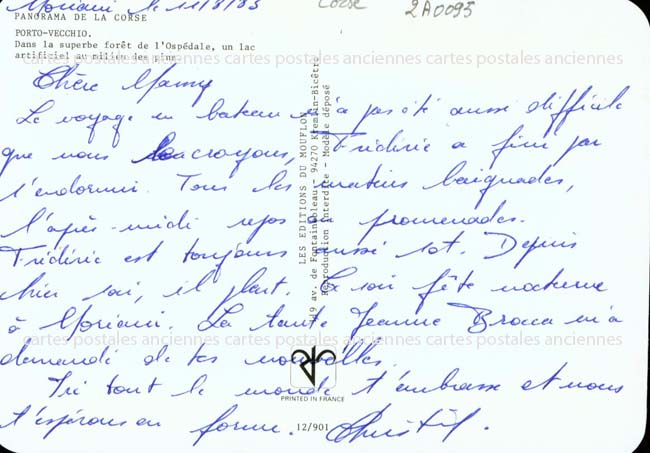 Moriani le 11/8/83
Corse
2A0095
PANORAMA DE LA CORSE
PORTO-VECCHIO.
Dans la superbe forêt de l'Ospédale, un lac
artificiel au milieu des pins.
cartes postales anciennes cartes postales anciennes cartes postales anciennes
Chère Mamy
Le voyage en bateau n'a pas été aussi difficile
que nous le croyons, Frédéric a fini par
s'endormir. Tous les matins baignades,
l'après-midi repos ou promenades.
Frédéric est toujours aussi sot. Depuis
hier soir, il pleut. Ce soir fête nocturne
à Moriani. La tante Jeanne m'a
cartes postales anciennes cartes postales anciennes cartes postales anciennes
demandé de tes nouvelles.
Ici tout le monde t'embrasse et nous
t'espérons en forme.
LES EDITIONS DU MOUFLON
av. de Fontainebleau - 94270 Kremlin-Bicêtre
Reproduction interdite - Modèle déposé
PRINTED IN FRANCE
12/901